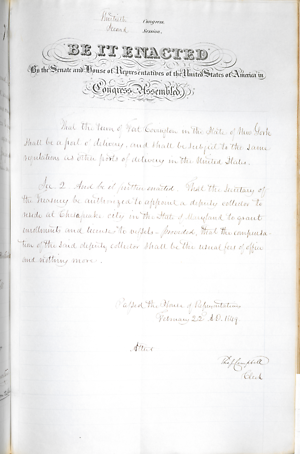 Thirtieth Congress
Second Session,
BE IT ENACTED
By the Senate and House of Representatives of the United States of America in
Congress Assembled,
That the town of Fort Covington in the State of New York
shall be a port of delivery, and shall be subject to the same
regulations as other ports of delivery in the United States.
Sec 2. And be it further enacted. That the Secretary of
the Treasury be authorized to appoint a deputy collector to
reside at Chesapeake city in the State of Maryland to grant
enrollments and licenses to vessels - provided, that the compensa-
tion of the said deputy collector shall be the usual fees of office
and nothing more.
Passed the House of Representatives
February 22 A.D. 1849.
Attest
Campbell
Clerk